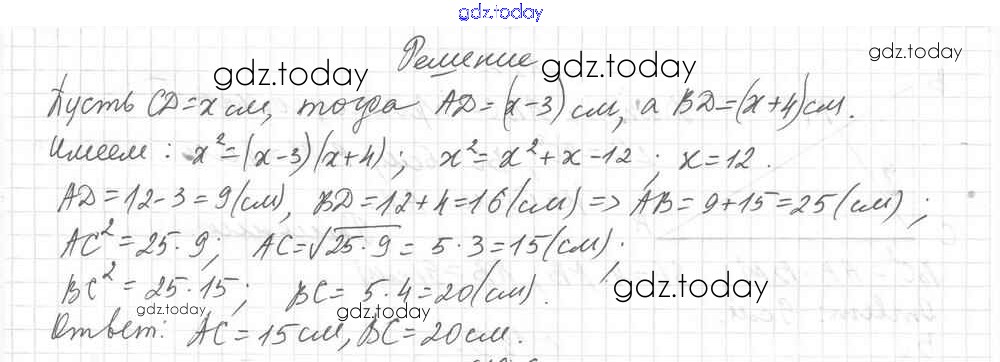 gdz.today
Решение
gdz.today gdz.today gdz.today
Пусть CD=x см, тогда AD=(x-3)см, а BD=(x+4)см.
Имеем: x²=(x-3)(x+4); x²=x²+x-12; x=12.
AD=12-3=9(см), BD=12+4=16(см) => AB=9+15=25(см);
AC²=25·9; AC=√25·9=5·3=15(см);
BC²=25·15; BC=5·4=20(см).
gdz.today gdz.today gdz.today
Ответ: AC=15см, BC=20см.